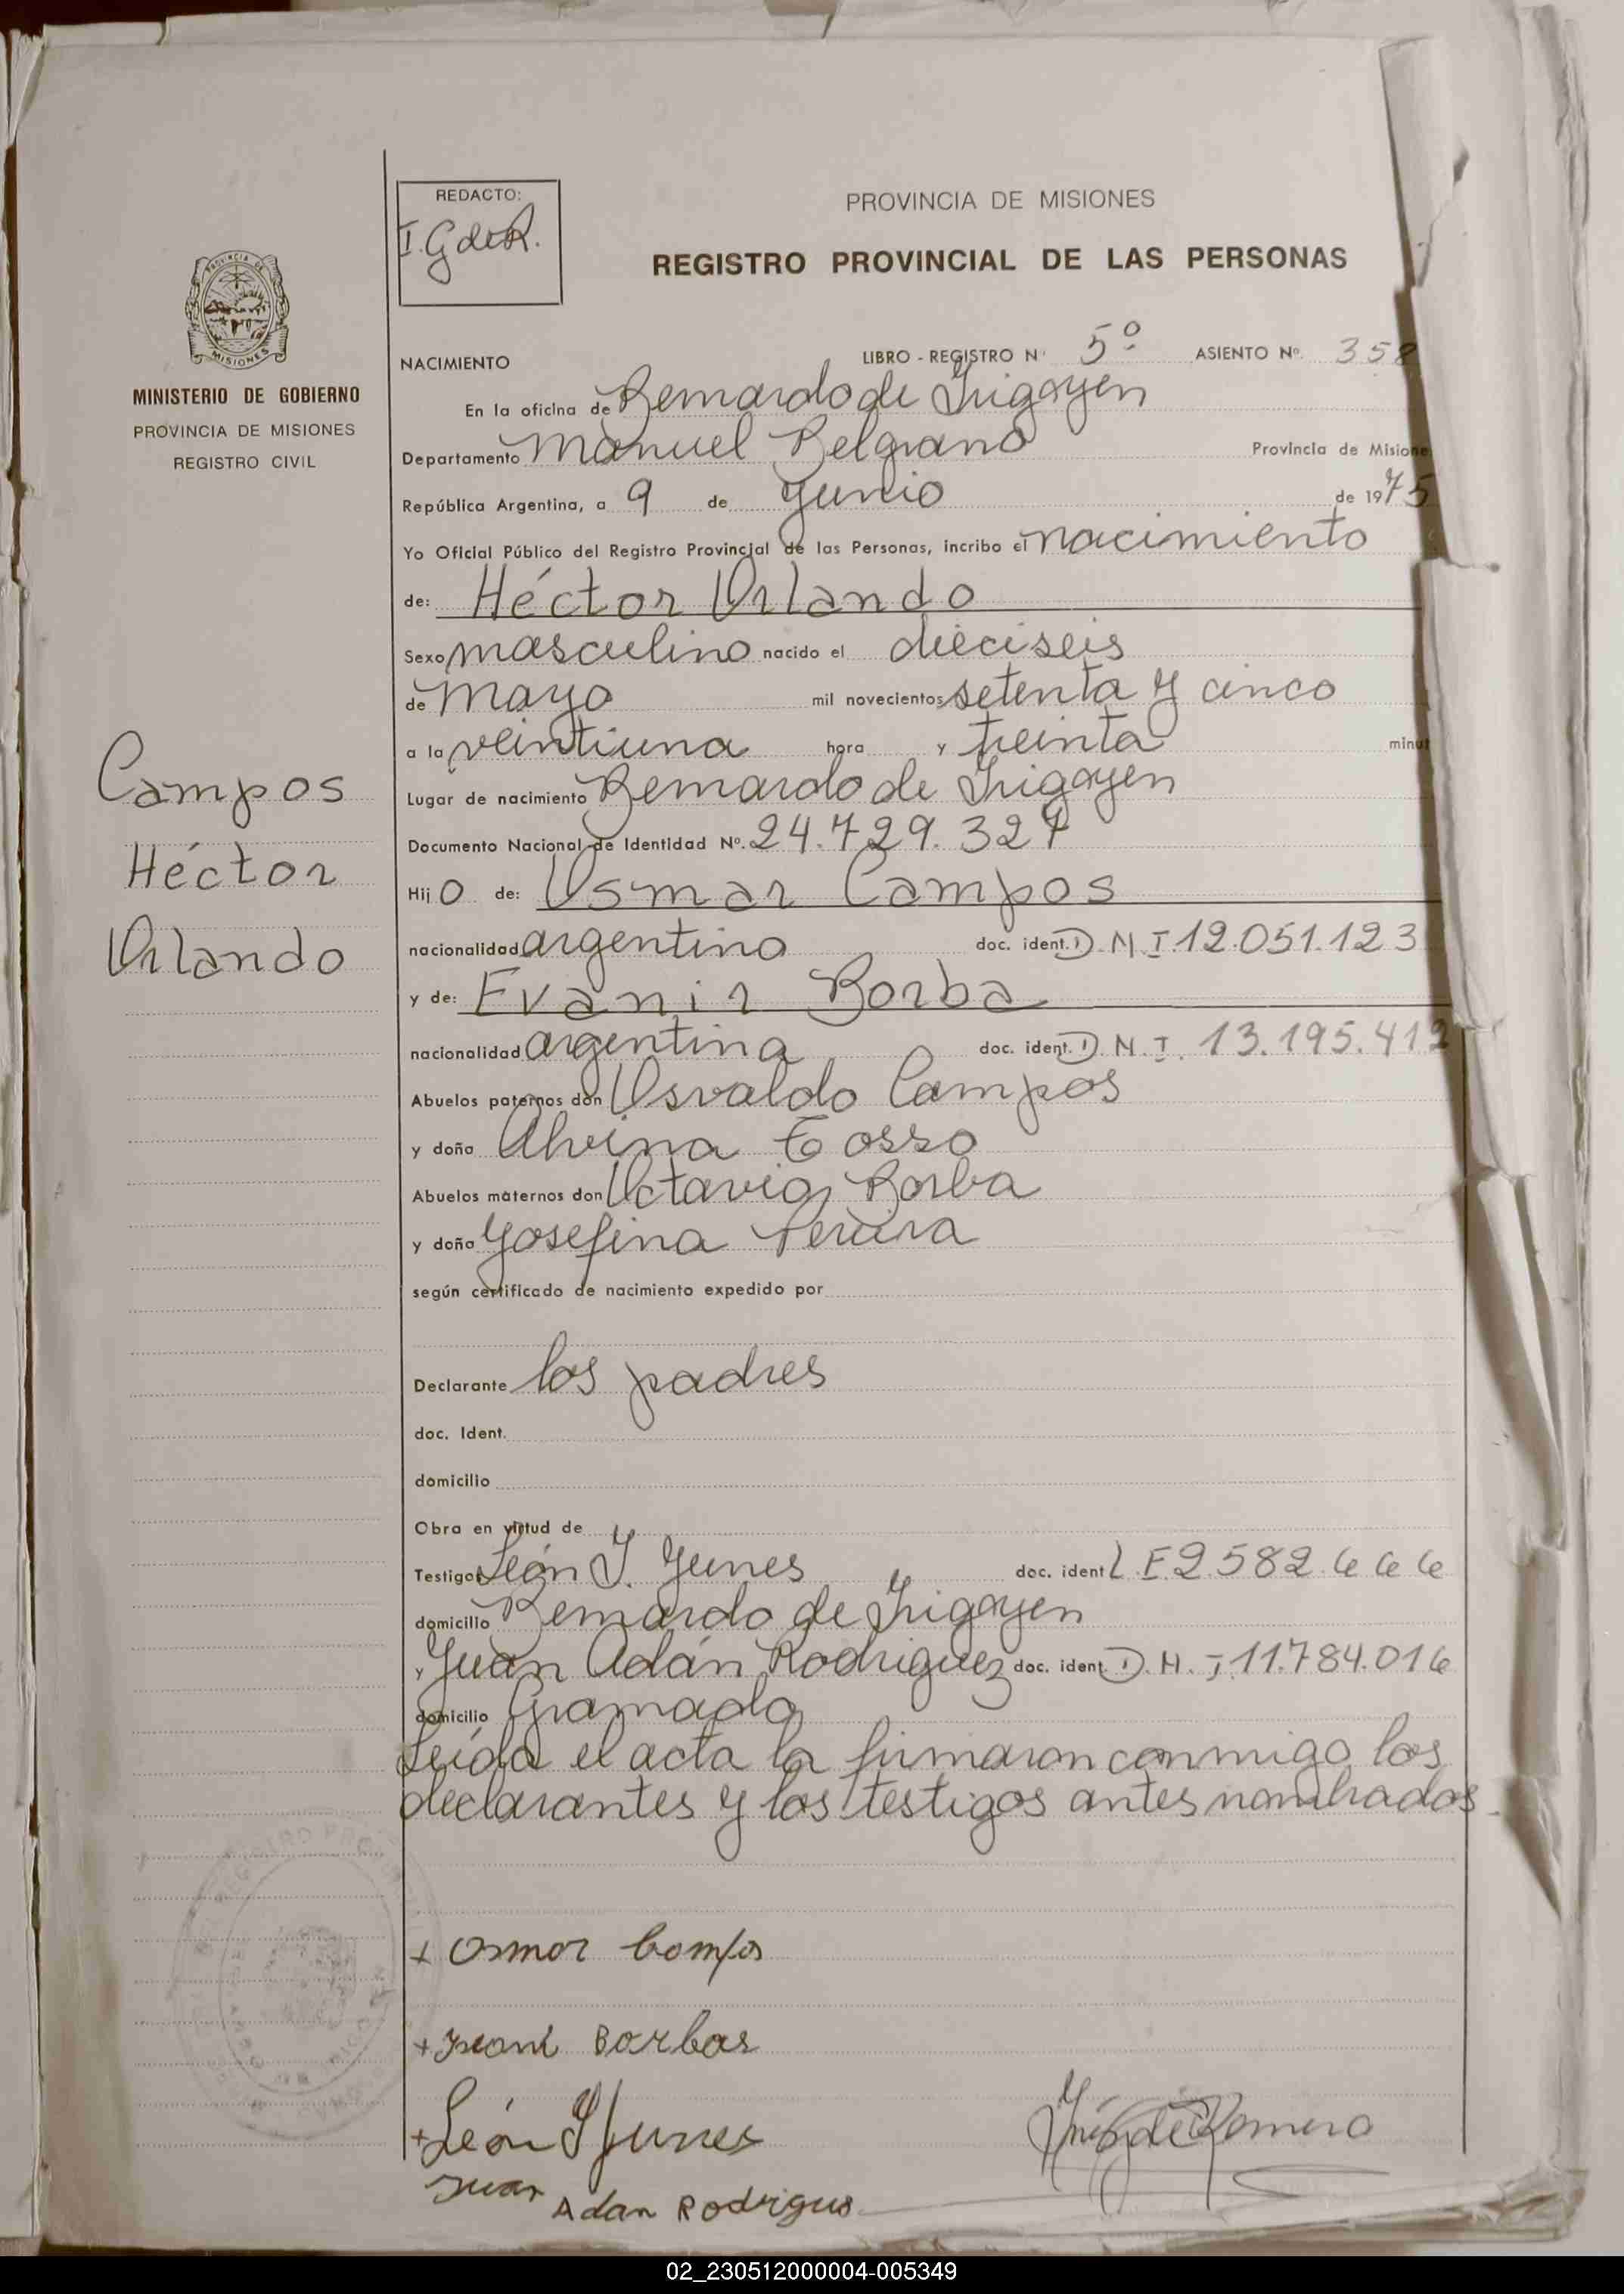 REDACTO:
I. G de R.
PROVINCIA DE MISIONES
REGISTRO PROVINCIAL DE LAS PERSONAS
PROVINCIA DE
MISIONES
MINISTERIO DE GOBIERNO
PROVINCIA DE MISIONES
REGISTRO CIVIL
Campos
Héctor
Orlando
NACIMIENTO LIBRO - REGISTRO Nº 5º ASIENTO Nº. 358
En la oficina de Bernardo de Irigoyen
Departamento Manuel Belgrano Provincia de Misione
República Argentina, a 9 de Junio de 1975
Yo Oficial Público del Registro Provincial de las Personas, incribo el nacimiento
de: Héctor Orlando
Sexo masculino nacido el dieciseis
de Mayo mil novecientos setenta y cinco
a la veintiuna hora y treinta minut
Lugar de nacimiento Bernardo de Irigoyen
Documento Nacional de Identidad Nº. 24.729.327
Hijo de: Osmar Campos
nacionalidad argentino doc. ident. D.N.I. 12.051.123
y de: Evanir Borba
nacionalidad argentina doc. ident. D.N.I. 13.195.412
Abuelos paternos don Osvaldo Campos
y doña Alvina Tosso
Abuelos maternos don Octavio Borba
y doña Josefina Pereira
según certificado de nacimiento expedido por
Declarante los padres
doc. Ident.
domicilio
Obra en virtud de
Testigos León J. Yunes doc. ident L.E 2.582.666
domicilio Bernardo de Irigoyen
y Juan Adán Rodriguez doc. ident. D.N.I. 11.784.016
domicilio Gramado
Leída el acta la firmaron conmigo los
declarantes y los testigos antes nombrados.
+ Osmar Campos
+ Borbas
+ León J Yunes
Inés G de Romero
Juan Adan Rodrigus
02_230512000004-005349